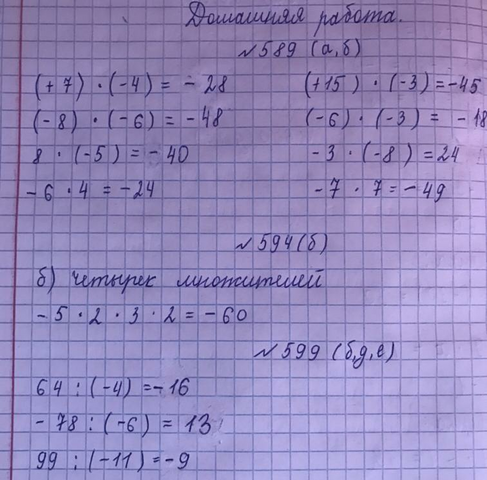 Домашняя работа.
№589 (а,б)
(+7) · (-4) = - 28 (+15) · (-3) = -45
(-8) · (-6) = -48 (-6) · (-3) = - 18
8 · (-5) = -40 -3 · (-8) = 24
-6 · 4 = -24 -7 · 7 = -49
№594(б)
б) четырек множителей
-5 · 2 · 3 · 2 = -60
№599 (б,д,е)
64 : (-4) = -16
-78 : (-6) = 13
99 : (-11) = -9